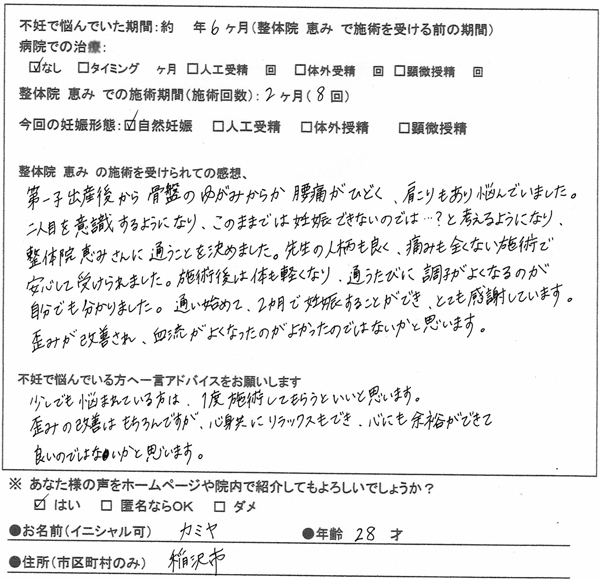 不妊で悩んでいた期間:約　年6ヶ月(整体院 恵み で施術を受ける前の期間)
病院での治療:
☑なし □タイミング　ヶ月 □人工受精　回 □体外受精　回 □顕微授精　回
整体院 恵み での施術期間(施術回数):2ヶ月(8回)
今回の妊娠形態:☑自然妊娠 □人工受精 □体外受精 □顕微授精
整体院 恵み の施術を受けられての感想、
第一子出産後から骨盤のゆがみからか腰痛がひどく、肩こりもあり悩んでいました。
二人目を意識するようになり、このままでは妊娠できないのでは…?と考えるようになり、
整体院恵みさんに通うことを決めました。先生の人柄も良く、痛みも全くない施術で
安心して受けられました。施術後は体も軽くなり、通うたびに調子がよくなるのが
自分でも分かりました。通い始めて、2カ月で妊娠することができ、とても感謝しています。
歪みが改善され、血流がよくなったのがよかったのではないかと思います。
不妊で悩んでいる方へ一言アドバイスをお願いします
少しでも悩まれている方は、1度施術してもらうといいと思います。
歪みの改善はもちろんですが、心身共にリラックスもでき、心にも余裕ができて
良いのではないかと思います。
※ あなた様の声をホームページや院内で紹介してもよろしいでしょうか?
☑ はい □ 匿名ならOK □ ダメ
●お名前(イニシャル可) カミヤ ●年齢 28 才
●住所(市区町村のみ) 稲沢市